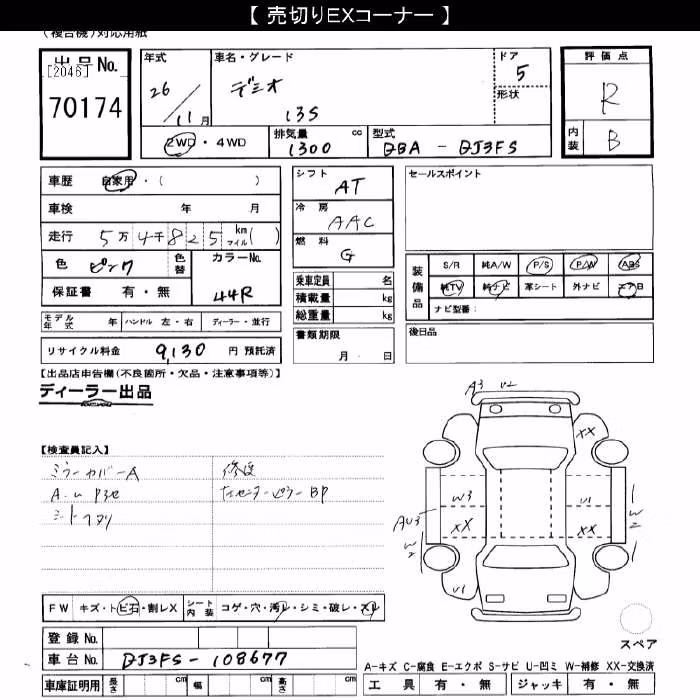 【 売切りEXコーナー 】
(複合機)対応用紙
出品No.
[2046]
70174
年式
26/11月
車名・グレード
デミオ
13S
ドア
5
形状
評価点
R
内装
B
2WD・4WD
排気量 cc
1300
型式
DBA - DJ3FS
車歴 自家用・( )
車検 年 月
走行 5万4千825 km マイル( )
色 ピンク
色替
カラーNo.
44R
保証書 有・無
シフト
AT
冷房
AAC
燃料
G
乗車定員 名
積載量 kg
総重量 kg
セールスポイント
装備品
S/R 純A/W P/S P/W ABS
純TV 純ナビ 革シート 外ナビ エアB
ナビ型番:
モデル年式 年 ハンドル 左・右 ディーラー・並行
書類期限
月 日
後日品
リサイクル料金 9,130 円 預託済
【出品店申告欄(不良箇所・欠品・注意事項等)】
ディーラー出品
【検査員記入】
ミラーカバーA
修復
センターピラーBP
A3 U2
XX
W3 U1
AU3
XX XX
W2
W2
U1
FW キズ・トビ石・割レX
シート内装 コゲ・穴・汚レ・シミ・破レ・スレ
登録No.
車台No. DJ3FS-108677
車庫証明用 長さ cm 幅 cm 高さ cm
スペア
A-キズ C-腐食 E-エクボ S-サビ U-凹ミ W-補修 XX-交換済
工具 有・無 ジャッキ 有・無